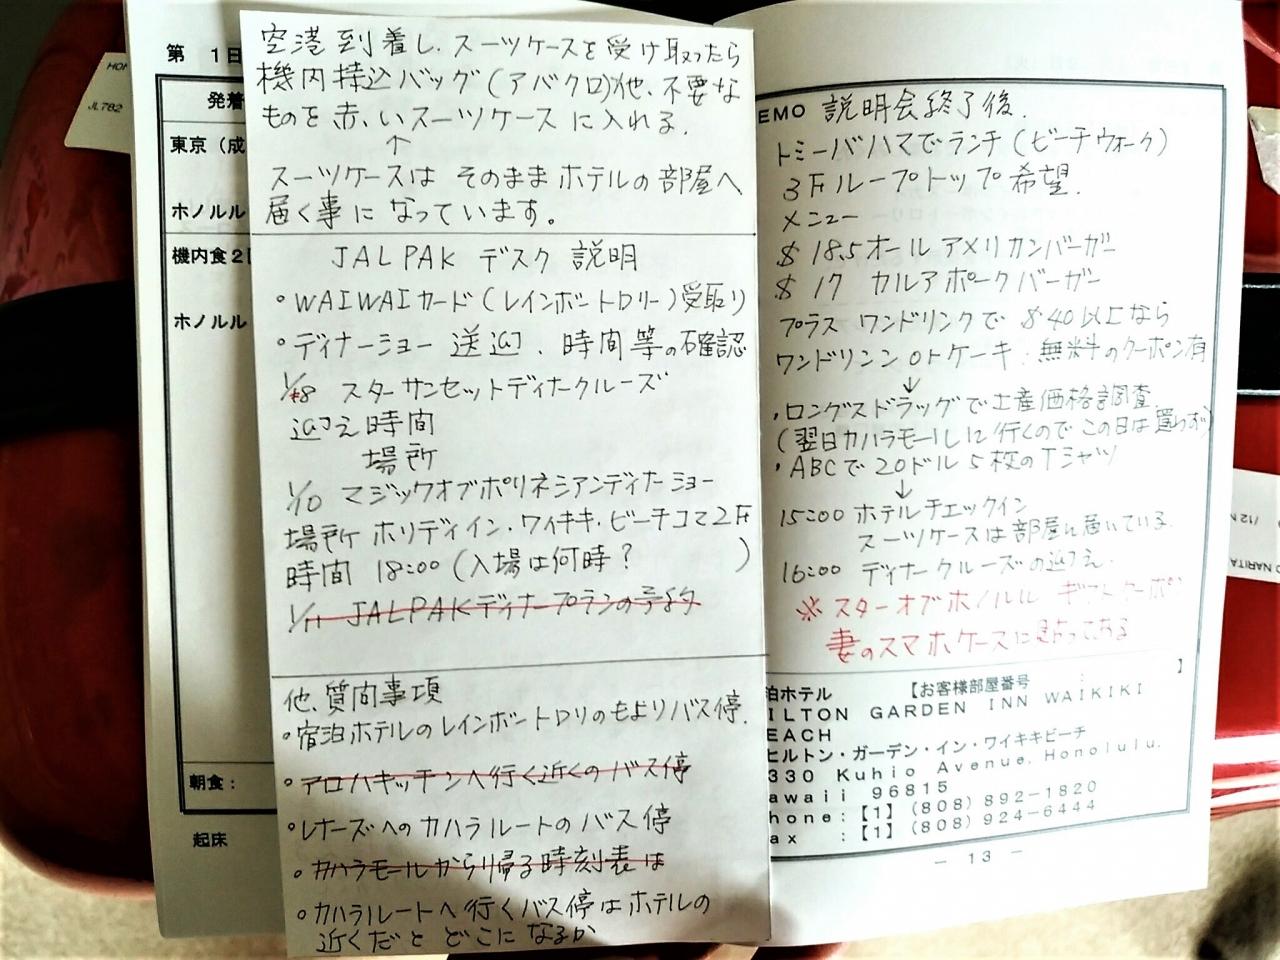 第 1日
発着
東京（成
ホノルル
機内食2
ホノルル
朝食：
起床
JL782
空港到着し、スーツケースを受け取ったら
機内持込バッグ（アバクロ)他、不要な
ものを赤いスーツケースに入れる.
↑
スーツケースは そのままホテルの部屋へ
届く事になっています。
JALPAK デスク 説明
・WAIWAIカード（レインボートロリー）受取り
・ディナーショー 送迎、時間等の確認
1/8 スターサンセットディナークルーズ
迎え時間
場所
1/10 マジックオブポリネシアンディナーショー
場所 ホリディイン・ワイキキ・ビーチコマ2F
時間 18:00（入場は何時？ ）
1/11 JALPAKディナープランの予約
他、質問事項
・宿泊ホテルのレインボートロリのもよりバス停.
・アロハキッチンへ行く近くのバス停
・レナーズへのカハラルートのバス停
・カハラモールから帰る時刻表は
・カハラルートへ行くバス停はホテルの
近くだと どこになるか
EMO 説明会終了後.
トミーバハマでランチ（ビーチウォーク）
3Fループトップ希望.
メニュー
$ 18.5オールアメリカンバーガー
$ 17 カルアポークバーガー
プラス ワンドリンクで $40以上なら
ワンドリンンorケーキ：無料のクーポン有
↓
・ロングスドラッグで土産価格調査
(翌日カハラモールに行くのでこの日は買わず)
・ABCで20ドル5枚のTシャツ
↓
15:00 ホテルチェックイン
スーツケースは部屋に届いている.
16:00 ディナークルーズの迎え
※スターオブホノルル ギフトクーポン
妻のスマホケースに貼ってある
】
泊ホテル 【お客様部屋番号 ：
ILTON GARDEN INN WAIKIKI
EACH
ヒルトン・ガーデン・イン・ワイキキビーチ
330 Kuhio Avenue, Honolulu,
awaii 96815
hone：【1】（808）892-1820
ax ：【1】（808）924-6444
－ 13 －
NARITA